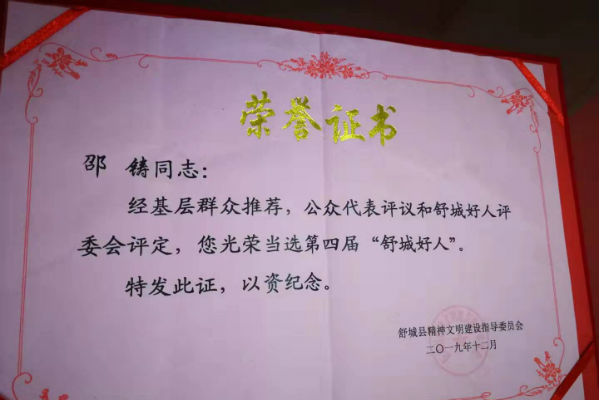 荣誉证书
邵 铸同志：
经基层群众推荐，公众代表评议和舒城好人评
委会评定，您光荣当选第四届“舒城好人”。
特发此证，以资纪念。
舒城县精神文明建设指导委员会
二〇一九年十二月